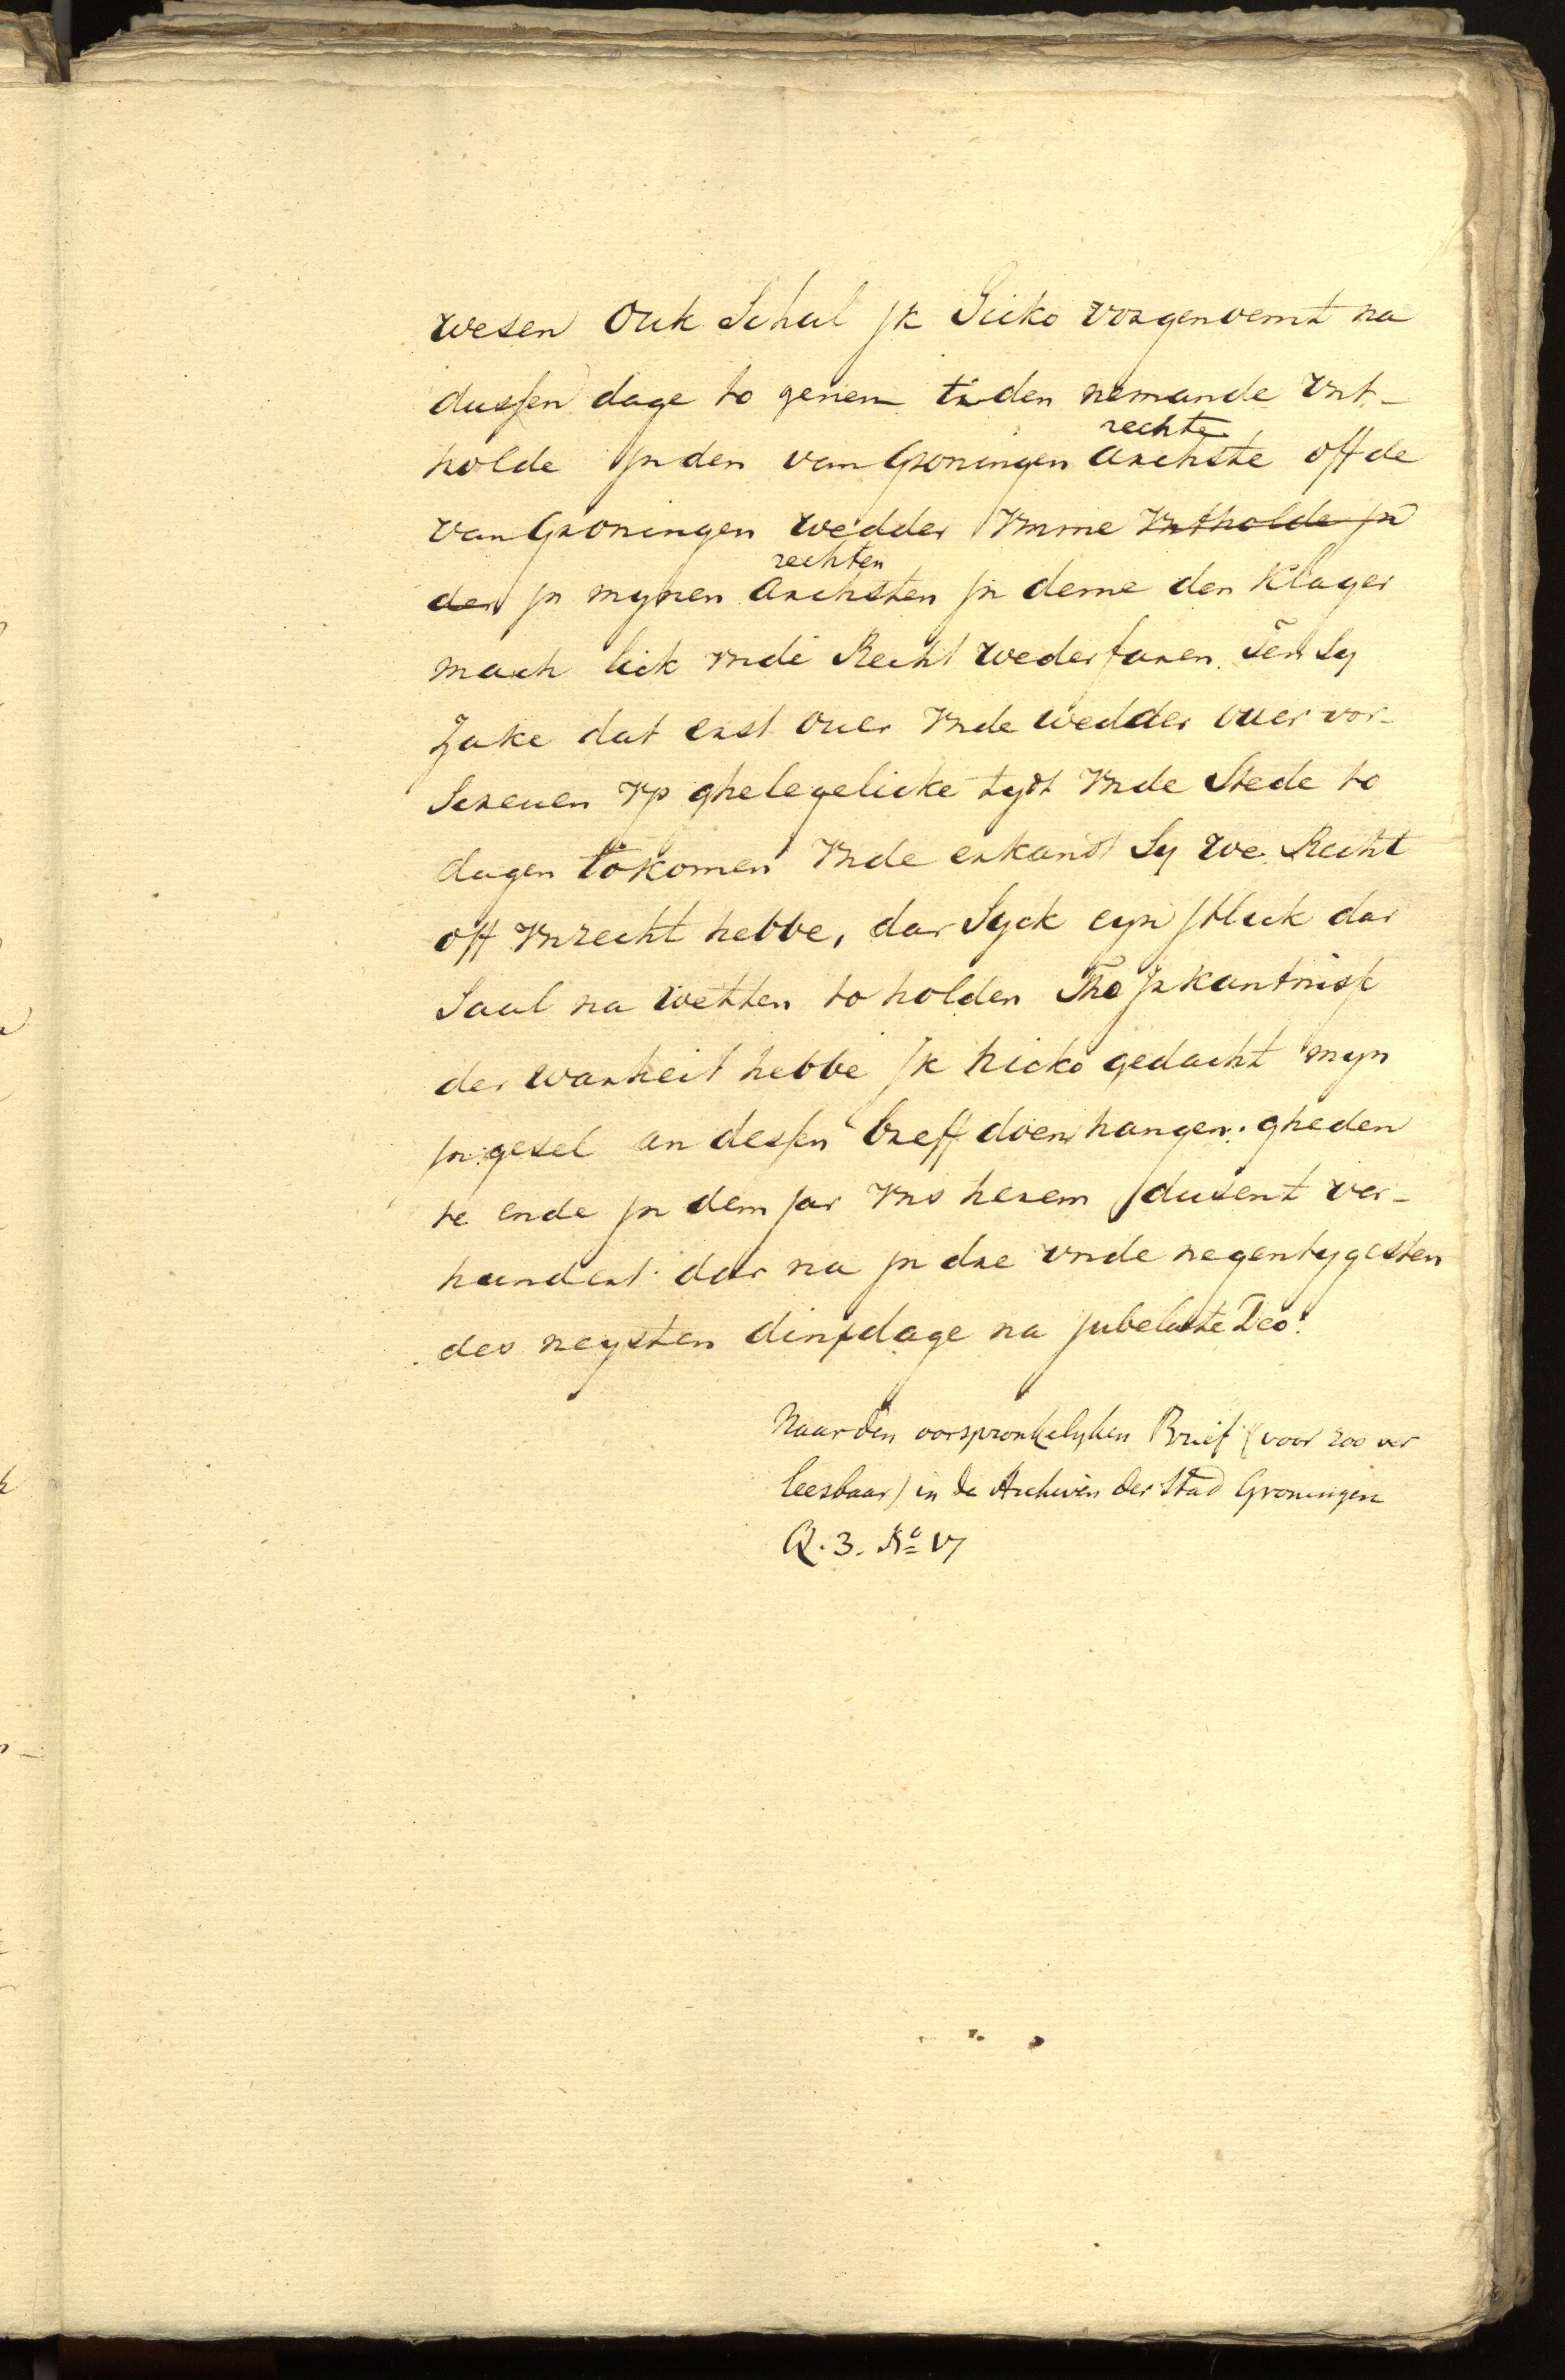 wesen Ouk Schul jk Hicko vorgenoemt na
dussen dage to genen tiden nemande vnt-
holde jn den van Groningen archste off de
rechte
van Groningen wedder ymme vntholde jn
rechten
den jn mynen archsten jn deme den klager
mach lick vnde Recht wederfaren Ten Sy
Zake dat erst ouer vnde wedder ouer vor-
Screuen vp ghelegelicke tydt vnde Stede to
dagen tokomen vnde erkandt Sy we Recht
off vnrecht hebbe, dar Syck eyn jtlick dar
Saul na wetten to holden Tho jrkantniss
der warheit hebbe jk hicko gedacht myn
jngesel an dessen breff doen hangen. gheden
te ende jn dem jar vns herem dusent ver-
hundert dar na jn dre vnde negentygesten
des neysten dinxdage na jubelate Deo.
Naar den oorspronkelyken Brief (voor zoo ver
leesbaar) in de Archiven der Stad Groningen
Q. 3. No 17